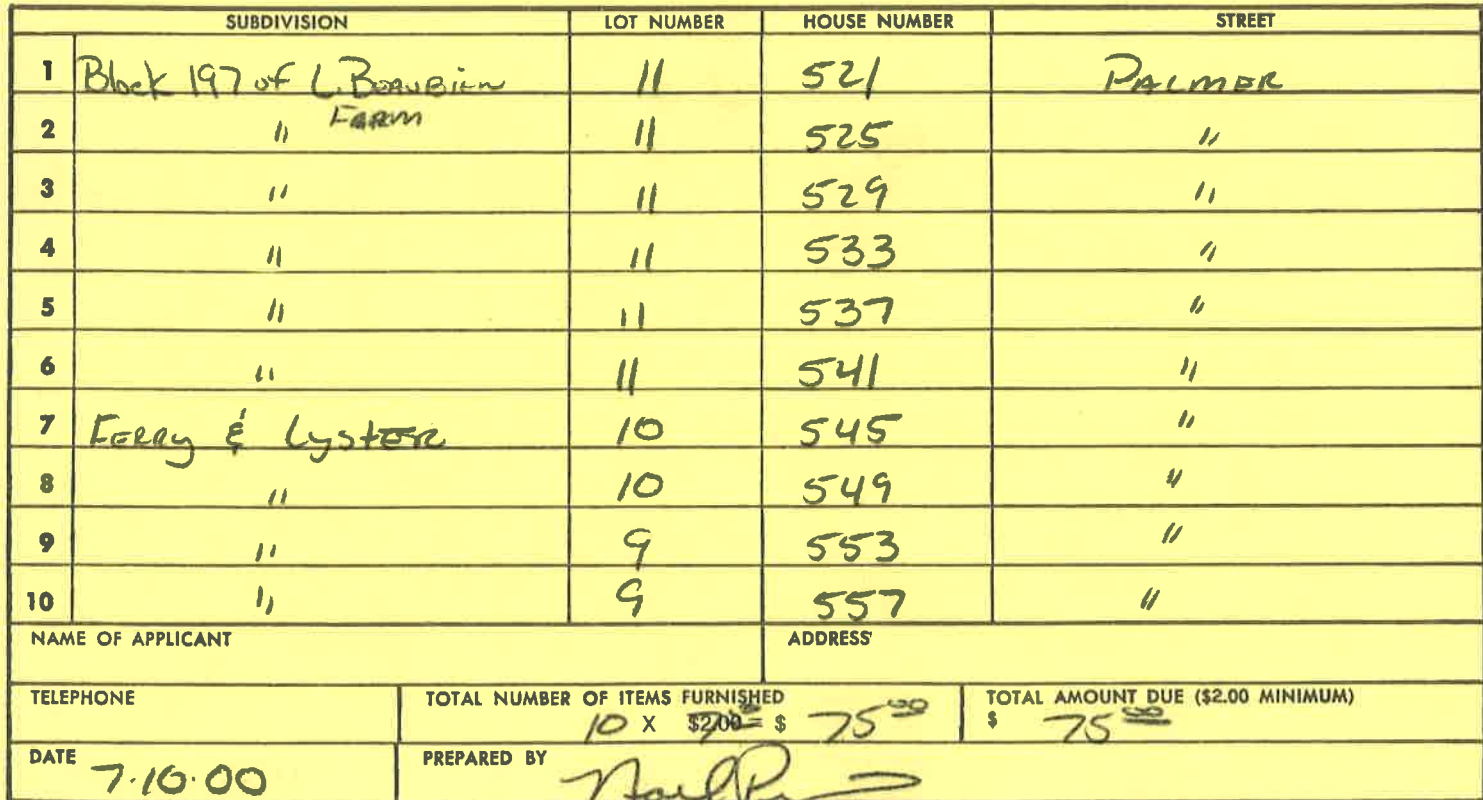 SUBDIVISION LOT NUMBER HOUSE NUMBER STREET
1 Block 197 of L. Beaubien 11 521 Palmer
Farm
2 " 11 525 "
3 " 11 529 "
4 " 11 533 "
5 " 11 537 "
6 " 11 541 "
7 Ferry & Lyster 10 545 "
8 " 10 549 "
9 " 9 553 "
10 " 9 557 "
NAME OF APPLICANT ADDRESS
TELEPHONE TOTAL NUMBER OF ITEMS FURNISHED TOTAL AMOUNT DUE ($2.00 MINIMUM)
10 X $2.00 = $ 75 00 $ 75 00
DATE PREPARED BY
7.10.00